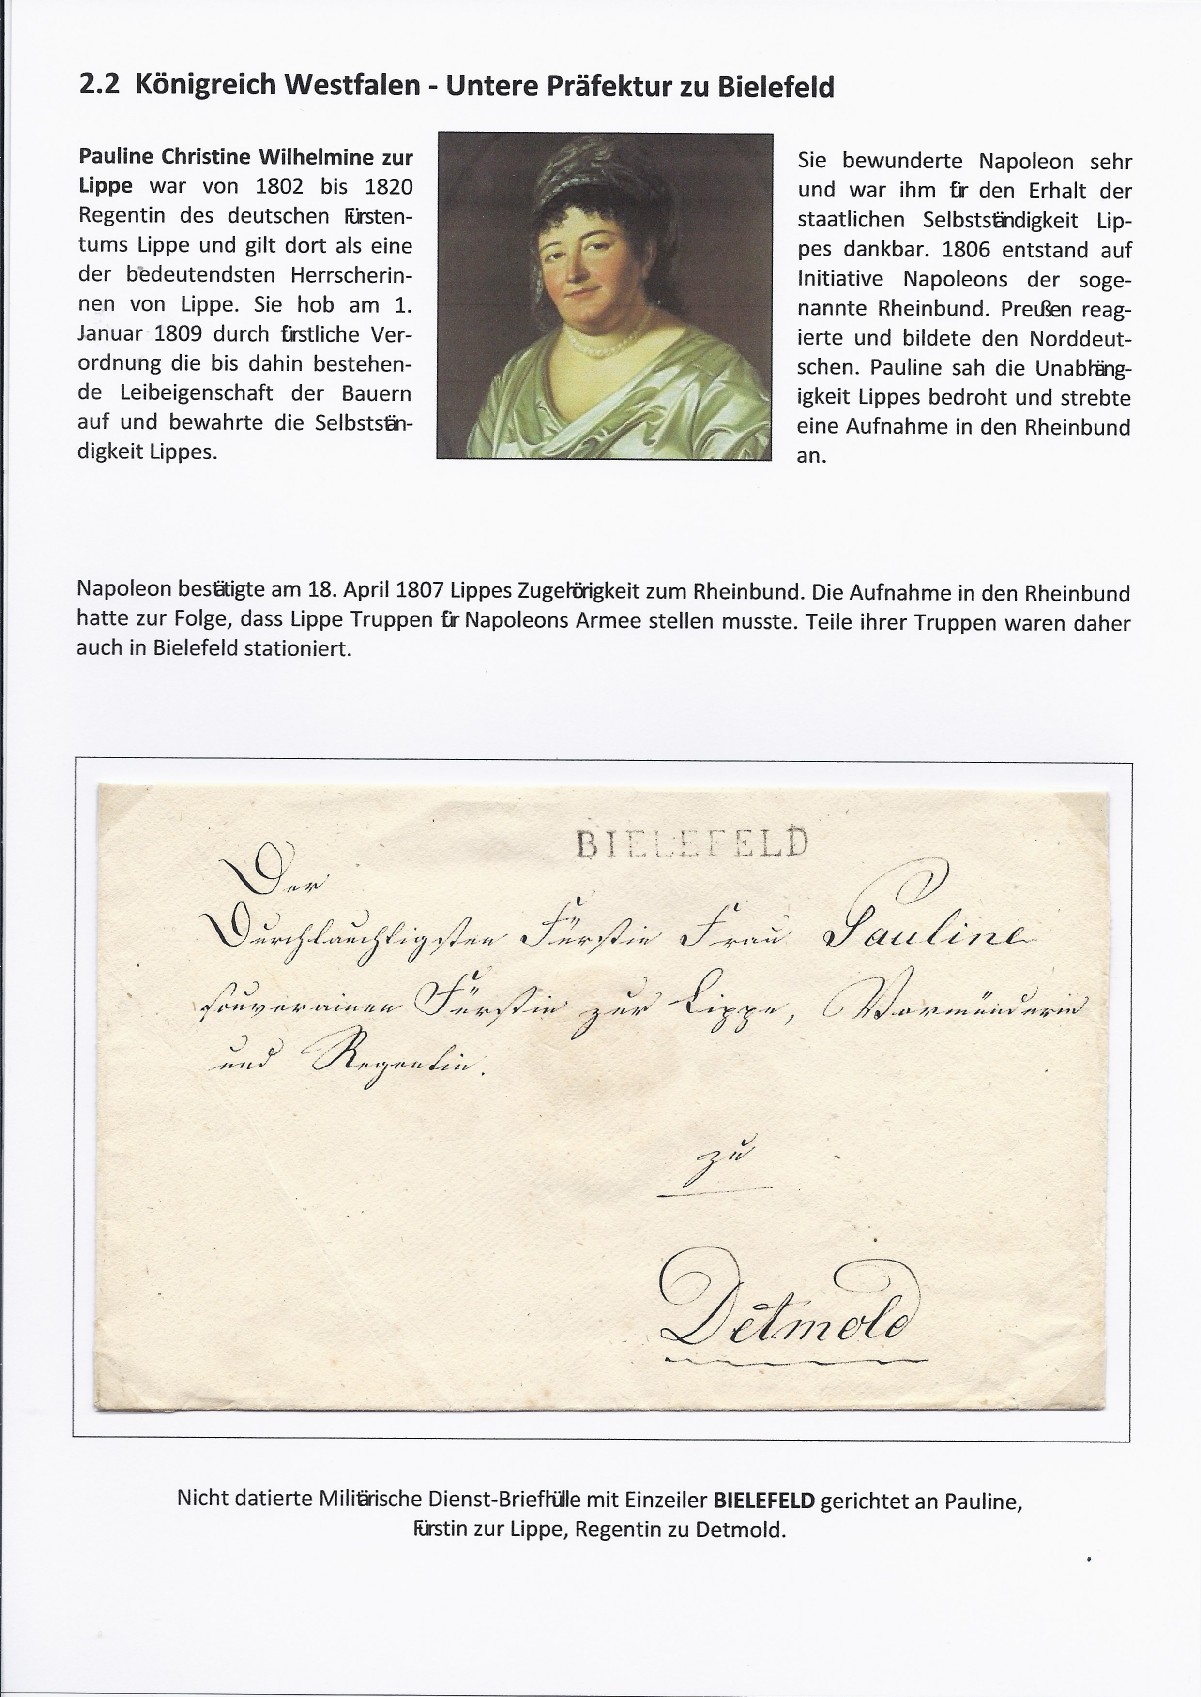 2.2 Königreich Westfalen - Untere Präfektur zu Bielefeld
Pauline Christine Wilhelmine zur
Lippe war von 1802 bis 1820
Regentin des deutschen Fürsten-
tums Lippe und gilt dort als eine
der bedeutendsten Herrscherin-
nen von Lippe. Sie hob am 1.
Januar 1809 durch fürstliche Ver-
ordnung die bis dahin bestehen-
de Leibeigenschaft der Bauern
auf und bewahrte die Selbststän-
digkeit Lippes.
Sie bewunderte Napoleon sehr
und war ihm für den Erhalt der
staatlichen Selbstständigkeit Lip-
pes dankbar. 1806 entstand auf
Initiative Napoleons der soge-
nannte Rheinbund. Preußen reag-
ierte und bildete den Norddeut-
schen. Pauline sah die Unabhäng-
igkeit Lippes bedroht und strebte
eine Aufnahme in den Rheinbund
an.
Napoleon bestätigte am 18. April 1807 Lippes Zugehörigkeit zum Rheinbund. Die Aufnahme in den Rheinbund
hatte zur Folge, dass Lippe Truppen für Napoleons Armee stellen musste. Teile ihrer Truppen waren daher
auch in Bielefeld stationiert.
BIELEFELD
Der
Durchlauchtigsten Fürstin Frau Pauline
souverainen Fürstin zur Lippe, Vormünderin
und Regentin.
zu
Detmold
Nicht datierte Militärische Dienst-Briefhülle mit Einzeiler BIELEFELD gerichtet an Pauline,
Fürstin zur Lippe, Regentin zu Detmold.